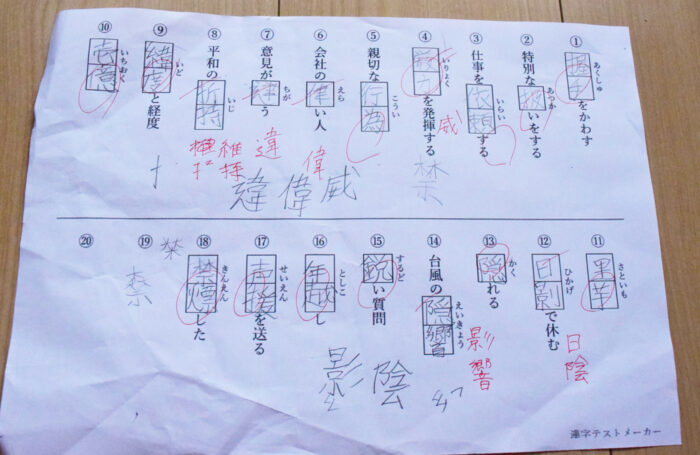 ① 握手をかわす あくしゅ
② 特別な扱いをする あつか
③ 仕事を依頼する いらい
④ 力を発揮する いりょく
威
禁
⑤ 親切な行為 こうい
⑥ 会社の律い人 えら
偉
⑦ 意見がう ちが
違
違偉威
⑧ 平和の持 いじ
維持
⑨ 緯度と経度 いど
⑩ 壱億 いちおく
⑪ 里芋 さといも
⑫ 日影で休む ひかげ
日陰
⑬ 隠れる かく
⑭ 台風の隠響 えいきょう
影響
⑮ 鋭い質問 するど
影陰
⑯ 年越し としこ
⑰ 声援を送る せいえん
⑱ 禁煙した きんえん
⑲
禁
⑳
漢字テストメーカー